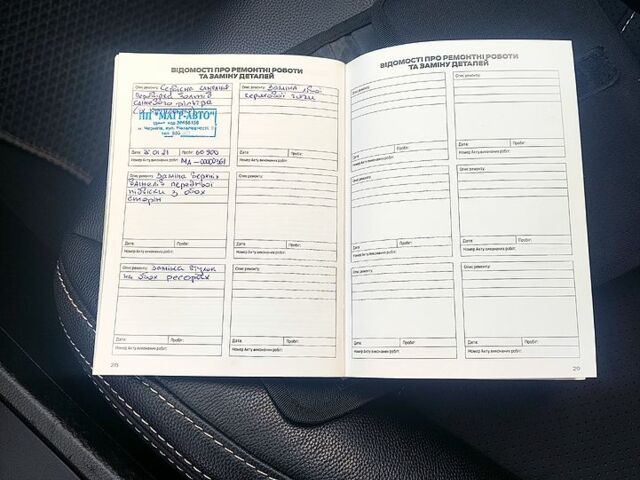 ВІДОМОСТІ ПРО РЕМОНТНІ РОБОТИ
ТА ЗАМІНУ ДЕТАЛЕЙ
Опис ремонту: Сервісна
заміна
ПП "МАГР-АВТО"
м. Чернігів, вул.
тел.
Дата: 01.21 Пробіг: 60 900
Номер Акту виконаних робіт:
Опис ремонту: Заміна
кермової тяги
Дата: Пробіг:
Номер Акту виконаних робіт:
Опис ремонту: Заміна верхніх
передньої
підвіски з обох
сторін
Дата: Пробіг:
Номер Акту виконаних робіт:
Опис ремонту:
Дата: Пробіг:
Номер Акту виконаних робіт:
Опис ремонту: Заміна втулок
на обох ресорах
Дата: Пробіг:
Номер Акту виконаних робіт:
Опис ремонту:
Дата: Пробіг:
Номер Акту виконаних робіт:
28
ВІДОМОСТІ ПРО РЕМОНТНІ РОБОТИ
ТА ЗАМІНУ ДЕТАЛЕЙ
Опис ремонту:
Дата: Пробіг:
Номер Акту виконаних робіт:
Опис ремонту:
Дата: Пробіг:
Номер Акту виконаних робіт:
Опис ремонту:
Дата: Пробіг:
Номер Акту виконаних робіт:
Опис ремонту:
Дата: Пробіг:
Номер Акту виконаних робіт:
Опис ремонту:
Дата: Пробіг:
Номер Акту виконаних робіт:
Опис ремонту:
Дата: Пробіг:
Номер Акту виконаних робіт:
29